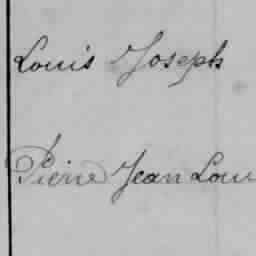 Louis Joseph
Pierre Jean Loui